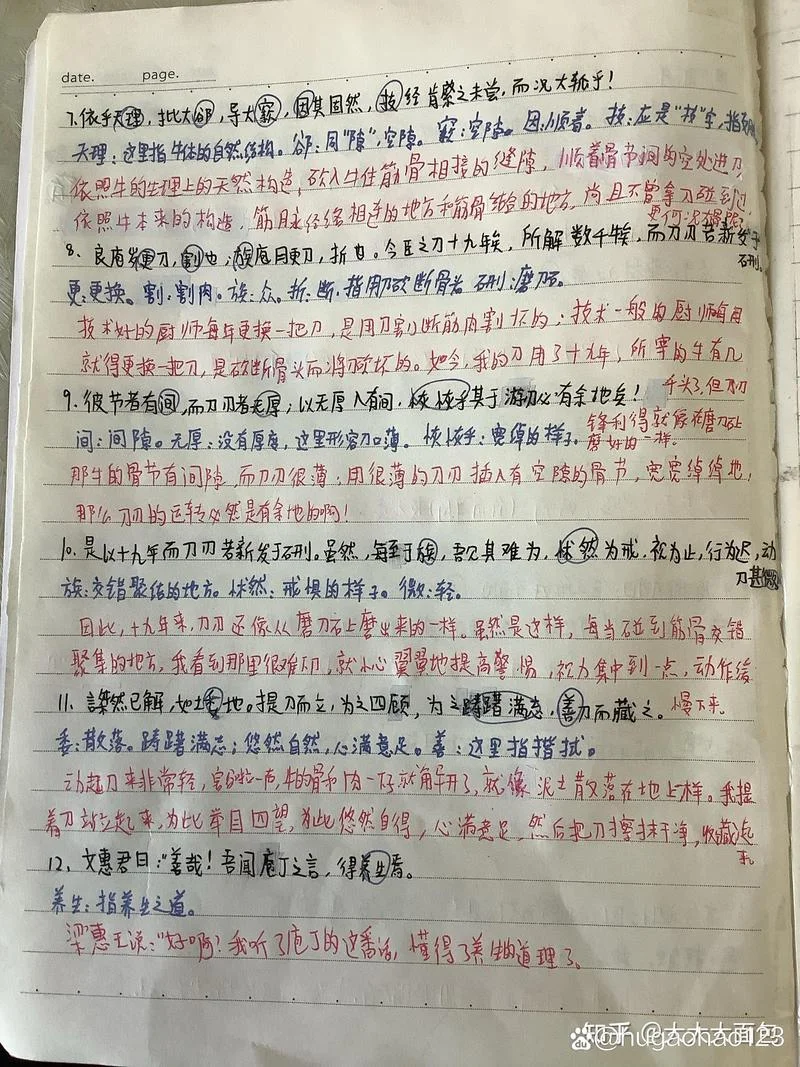 date. page.
7、依乎天理，批大郤，导大窾，因其固然，技经肯綮之未尝，而况大軱乎！
天理：这里指牛体的自然结构。郤：同"隙"，空隙。窾：空隙。因：顺着。技：应是"枝"字，指
依照牛的生理上的天然构造，砍入牛体筋骨相接的缝隙，顺着骨节间的空处进刀
依照牛本来的构造，筋脉经络相连的地方和筋骨结合的地方，尚且不曾拿刀碰到过
更何况大骨呢
8、良庖岁更刀，割也，族庖月更刀，折也。今臣之刀十九年矣，所解数千牛矣，而刀刃若新发于
硎。
更：更换。割：割肉。族：众。折：断，指用刀砍断骨头 硎：磨刀石。
技术好的厨师每年更换一把刀，是用刀割断筋肉割坏的；技术一般的厨师每月
就得更换一把刀，是砍断骨头而将刀砍坏的。如今，我的刀用了十九年，所宰的牛有几
千头了，但刀刃
9、彼节者有间，而刀刃者无厚；以无厚入有间，恢恢乎其于游刃必有余地矣！
锋利得就像在磨刀石
磨好的一样。
间：间隙。无厚：没有厚度，这里形容刀口薄。恢恢乎：宽绰的样子。
那牛的骨节有间隙，而刀刃很薄；用很薄的刀刃插入有空隙的骨节，宽宽绰绰地，
那么刀刃的运转必然是有余地的啊！
10、是以十九年而刀刃若新发于硎。虽然，每至于族，吾见其难为，怵然为戒，视为止，行为迟，动
刀甚微
族：交错聚结的地方。怵然：戒惧的样子。微：轻。
因此，十九年来，刀刃还像从磨刀石上磨出来的一样。虽然是这样，每当碰到筋骨交错
聚集的地方，我看到那里很难切，就小心翼翼地提高警惕，视力集中到一点，动作缓
慢下来。
11、謋然已解，如土委地。提刀而立，为之四顾，为之踌躇满志，善刀而藏之。
委：散落。踌躇满志：悠然自然，心满意足。善：这里指揩拭。
动起刀来非常轻，霍啦一声，牛的骨和肉一下子就解开了，就像泥土散落在地上一样。我提
着刀站立起来，为此举目四望，为此悠然自得，心满意足，然后把刀擦抹干净，收藏起
来
12、文惠君曰："善哉！吾闻庖丁之言，得养生焉。
养生：指养生之道。
梁惠王说："好啊！我听了庖丁的这番话，懂得了养生的道理了。
知乎 @大大大面包
@hugaohao123